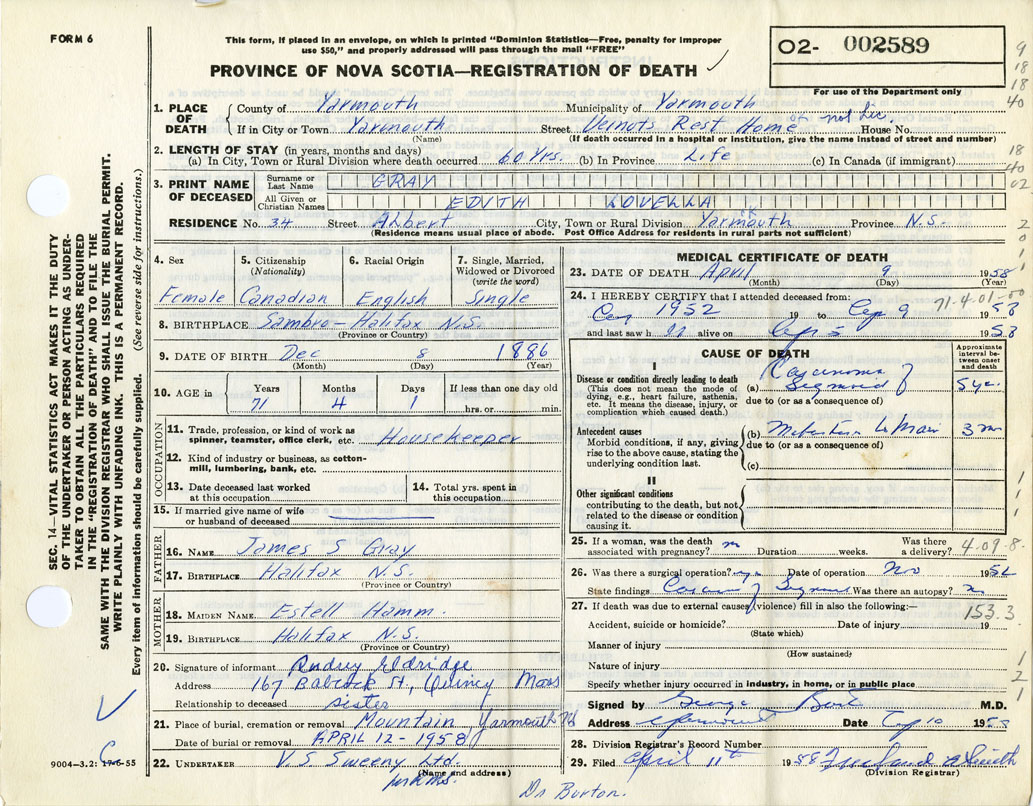 FORM 6
This form, if placed in an envelope, on which is printed "Dominion Statistics—Free, penalty for improper
use $50," and properly addressed will pass through the mail "FREE"
PROVINCE OF NOVA SCOTIA—REGISTRATION OF DEATH ✓
02- 002589
For use of the Department only
9
18
18
40
18
40
02
2
0
1
SEC. 14—VITAL STATISTICS ACT MAKES IT THE DUTY
OF THE UNDERTAKER OR PERSON ACTING AS UNDER-
TAKER TO OBTAIN ALL THE PARTICULARS REQUIRED
IN THE "REGISTRATION OF DEATH" AND TO FILE THE
SAME WITH THE DIVISION REGISTRAR WHO SHALL ISSUE THE BURIAL PERMIT.
WRITE PLAINLY WITH UNFADING INK. THIS IS A PERMANENT RECORD.
Every item of information should be carefully supplied. (See reverse side for instructions.)
1. PLACE OF DEATH
County of Yarmouth Municipality of Yarmouth
not Lic.
If in City or Town Yarmouth Street Vernots Rest Home House No.
(Name) (If death occurred in a hospital or institution, give the name instead of street and number)
2. LENGTH OF STAY (in years, months and days)
(a) In City, Town or Rural Division where death occurred 60 Yrs. (b) In Province Life (c) In Canada (if immigrant)
3. PRINT NAME OF DECEASED
Surname or Last Name GRAY
All Given or Christian Names EDITH LOVELLA
RESIDENCE No. 34 Street Albert City, Town or Rural Division Yarmouth Province N.S.
(Residence means usual place of abode. Post Office Address for residents in rural parts not sufficient)
4. Sex
Female
5. Citizenship (Nationality)
Canadian
6. Racial Origin
English
7. Single, Married, Widowed or Divorced (write the word)
Single
8. BIRTHPLACE Sambro - Halifax N.S.
(Province or Country)
9. DATE OF BIRTH Dec 8 1886
(Month) (Day) (Year)
10. AGE in
Years 71
Months 4
Days 1
If less than one day old
hrs. or min.
OCCUPATION
11. Trade, profession, or kind of work as
spinner, teamster, office clerk, etc. Housekeeper
12. Kind of industry or business, as cotton-
mill, lumbering, bank, etc.
13. Date deceased last worked
at this occupation
14. Total yrs. spent in
this occupation
15. If married give name of wife
or husband of deceased
FATHER
16. NAME James S Gray
17. BIRTHPLACE Halifax N.S.
(Province or Country)
MOTHER
18. MAIDEN NAME Estell Hamm.
19. BIRTHPLACE Halifax N.S.
(Province or Country)
20. Signature of informant Audrey Eldridge
Address 167 Babcock St, Quincy Mass
Relationship to deceased sister
21. Place of burial, cremation or removal Mountain Yarmouth
Date of burial or removal APRIL 12 - 1958
22. UNDERTAKER V.S. Sweeny Ltd.
(Name and address)
9004-3.2: 17-6-55
MEDICAL CERTIFICATE OF DEATH
23. DATE OF DEATH April 9 1958
(Month) (Day) (Year)
24. I HEREBY CERTIFY that I attended deceased from:
71.4.01.00
1952 19 to 9 1958
and last saw h alive on 1958
CAUSE OF DEATH
Approximate interval be-
tween onset and death
I
Disease or condition directly leading to death
(This does not mean the mode of
dying, e.g., heart failure, asthenia,
etc. It means the disease, injury, or
complication which caused death.)
(a) Carcinoma of Sigmoid
due to (or as a consequence of)
Antecedent causes
Morbid conditions, if any, giving
rise to the above cause, stating the
underlying condition last.
(b) 3
due to (or as a consequence of)
(c)
II
Other significant conditions
contributing to the death, but not
related to the disease or condition
causing it.
25. If a woman, was the death
associated with pregnancy? Duration weeks. Was there
a delivery? 4.09.8.
26. Was there a surgical operation? yes Date of operation Nov 19
State findings Carcinoma of Sigmoid Was there an autopsy?
27. If death was due to external causes (violence) fill in also the following:— 153.3
Accident, suicide or homicide? Date of injury 19
(State which)
Manner of injury
(How sustained)
Nature of injury
Specify whether injury occurred in industry, in home, or in public place
Signed by George Burton M.D.
Address Yarmouth Date 10 1958
28. Division Registrar's Record Number
29. Filed April 11th 1958
(Division Registrar)
1
1
1
1
2
1
Dr Burton.